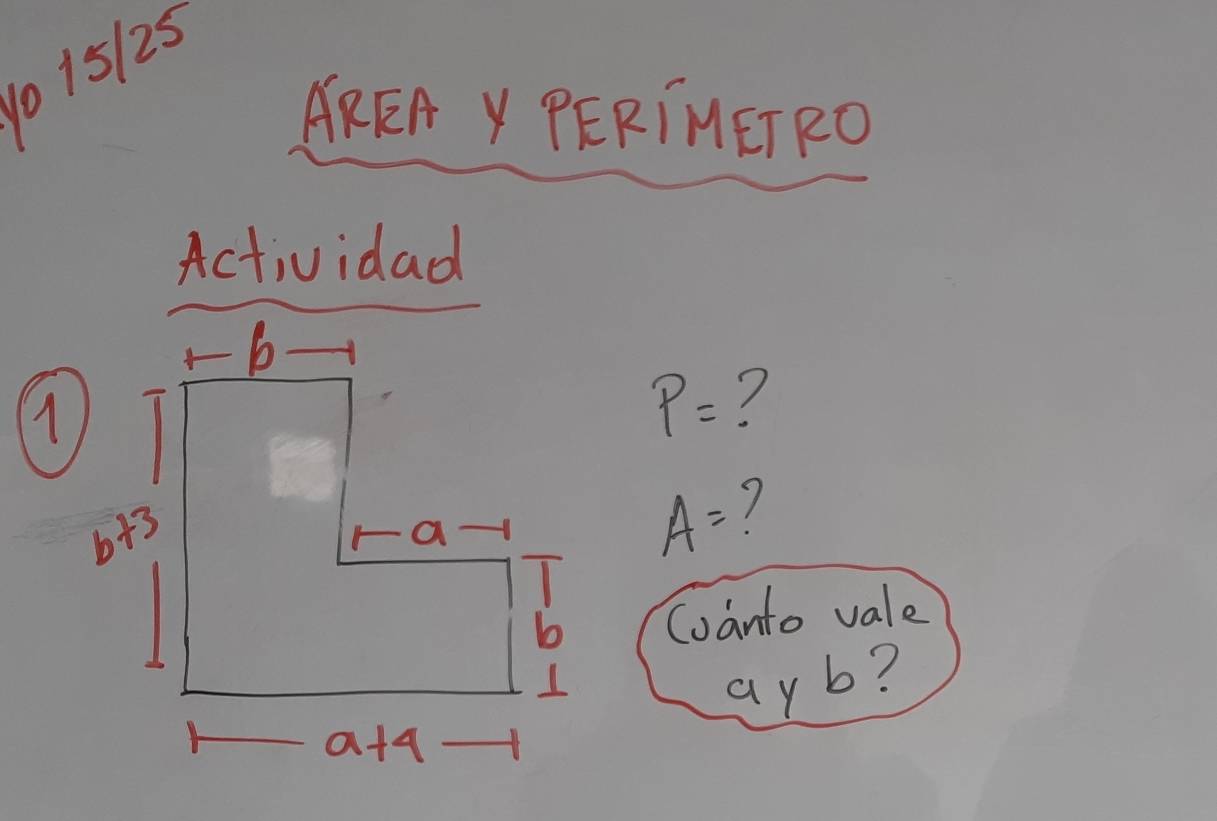 15/25
ÁREA Y PERÍMETRO
Actividad
1
b
b+3
a
b
a+4
P=?
A=?
Cuánto vale
a y b?